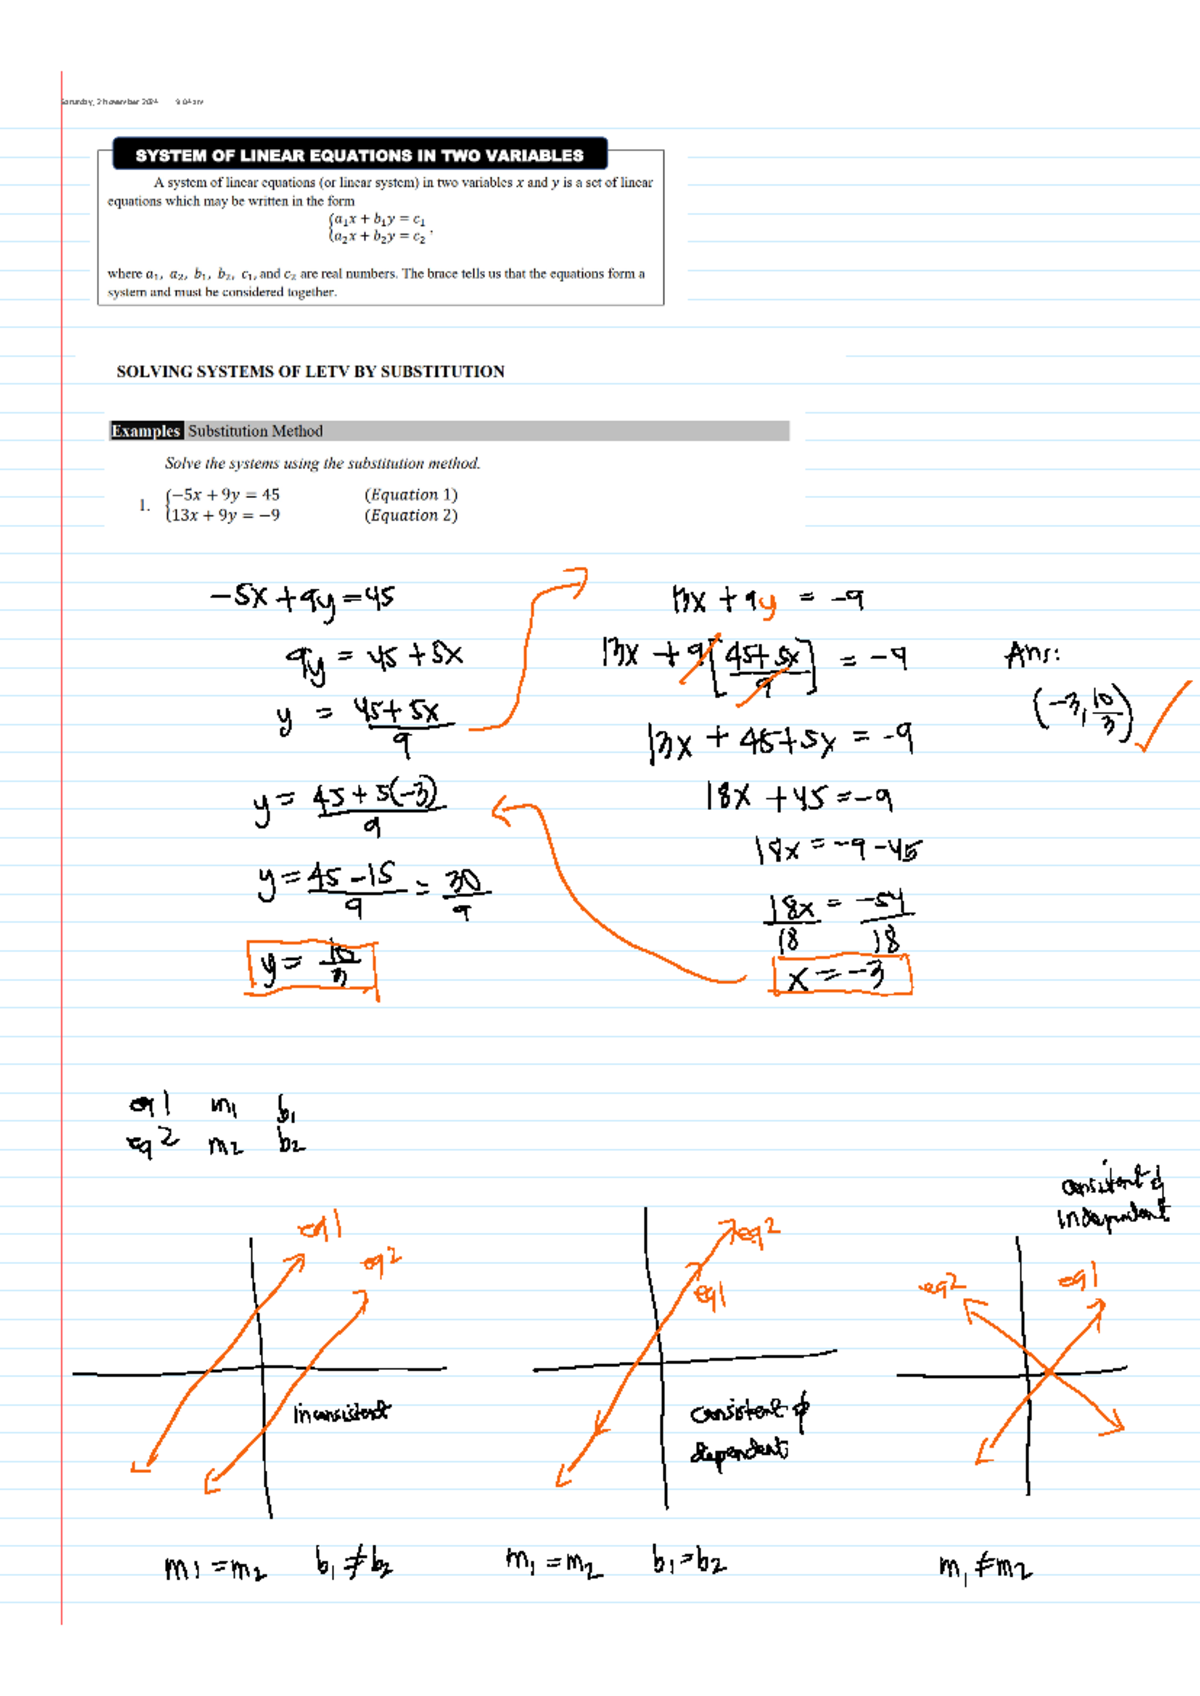 Saturday, 2 November 2024 9:04 am
SYSTEM OF LINEAR EQUATIONS IN TWO VARIABLES
A system of linear equations (or linear system) in two variables x and y is a set of linear
equations which may be written in the form
{a₁x + b₁y = c₁
a₂x + b₂y = c₂ .
where a₁, a₂, b₁, b₂, c₁, and c₂ are real numbers. The brace tells us that the equations form a
system and must be considered together.
SOLVING SYSTEMS OF LETV BY SUBSTITUTION
Examples Substitution Method
Solve the systems using the substitution method.
1. {−5x + 9y = 45 (Equation 1)
13x + 9y = −9 (Equation 2)
-5x + 9y = 45
9y = 45 + 5x
y = (45 + 5x)/9
y = (45 + 5(-3))/9
y = (45 - 15)/9 = 30/9
y = 10/3
13x + 9y = -9
13x + 9[(45 + 5x)/9] = -9
13x + 45 + 5x = -9
18x + 45 = -9
18x = -9 - 45
18x/18 = -54/18
x = -3
Ans:
(-3, 10/3)
eq1 m₁ b₁
eq2 m₂ b₂
eq1
eq2
inconsistent
m₁ = m₂ b₁ ≠ b₂
eq2
eq1
consistent &
dependent
m₁ = m₂ b₁ = b₂
consistent &
independent
eq2 eq1
m₁ ≠ m₂